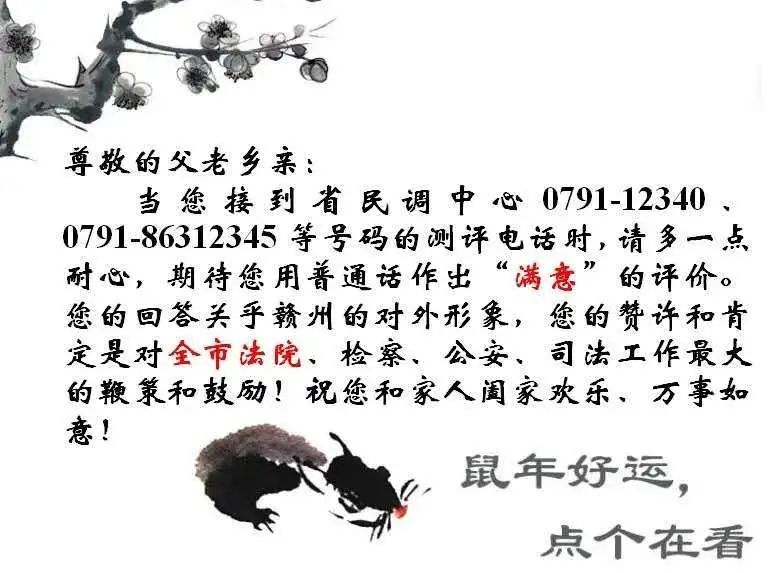 尊敬的父老乡亲：
当您接到省民调中心 0791-12340、
0791-86312345 等号码的测评电话时，请多一点
耐心，期待您用普通话作出“满意”的评价。
您的回答关乎赣州的对外形象，您的赞许和肯
定是对全市法院、检察、公安、司法工作最大
的鞭策和鼓励！祝您和家人阖家欢乐、万事如
意！
鼠年好运，
点个在看